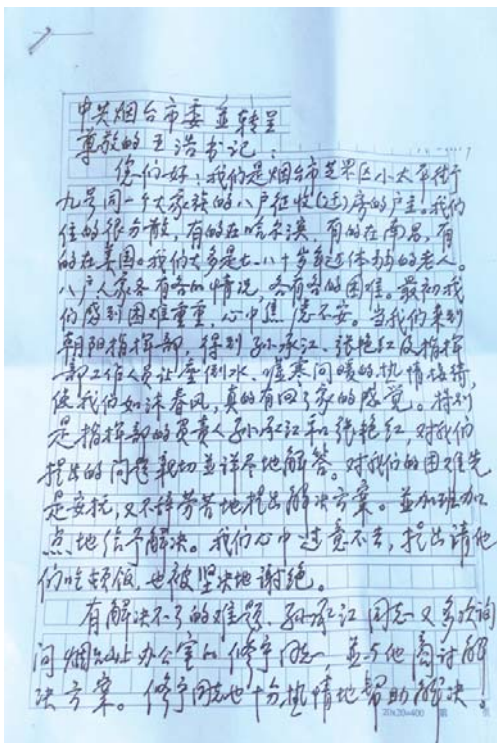 中共烟台市委並转呈
尊敬的王浩书记：
您们好！我们是烟台市芝罘区小太平街
九号同一个大家族的八户征收(迁)房的户主。我们
住的很分散，有的在哈尔滨，有的在南昌，有
的在美国。我们大多是七、八十岁年迈体弱的老人。
八户人家各有各的情况，各有各的困难。最初我
们感到困难重重，心中焦虑不安。当我们来到
朝阳指挥部，得到孙承江、张艳红及指挥
部工作人员让座倒水、嘘寒问暖的热情接待，
使我们如沐春风，真的有回了家的感觉。特别
是指挥部的负责人孙承江和张艳红，对我们
提出的问题亲切並详尽地解答。对我们的困难先
是安抚，又不辞劳苦地提出解决方案。並加班加
点地给予解决。我们心中过意不去，提出请他
们吃顿饭，也被坚决地谢绝。
有解决不了的难题，孙承江同志又多次询
问烟台山上办公室的修宇同志，並与他商讨解
决方案。修宇同志也十分热情地帮助解决。
20x20=400